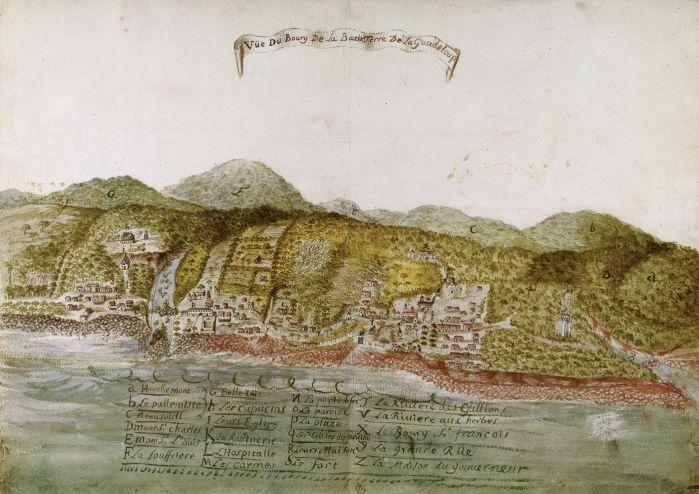 Vüe Du Bourg De La Basseterre De la Guadeloup
a Houellemont
b Le palletuiste
C Beausoleil
D mont St Charles
E mont St Louis
F La Souffriere
G Belle
h Les Capucins
I Leurs Eglise
K La Rafinerie
L L'Hospitalle
M Les Carmes
N La porte
o La paroise
p La place
R Leurs Maison
S Le fort
T La Riviere des Gallions
V La Riviere aux herbes
X Le Bourg St francois
La Grande Rüe
Z La Maison du gouverneur